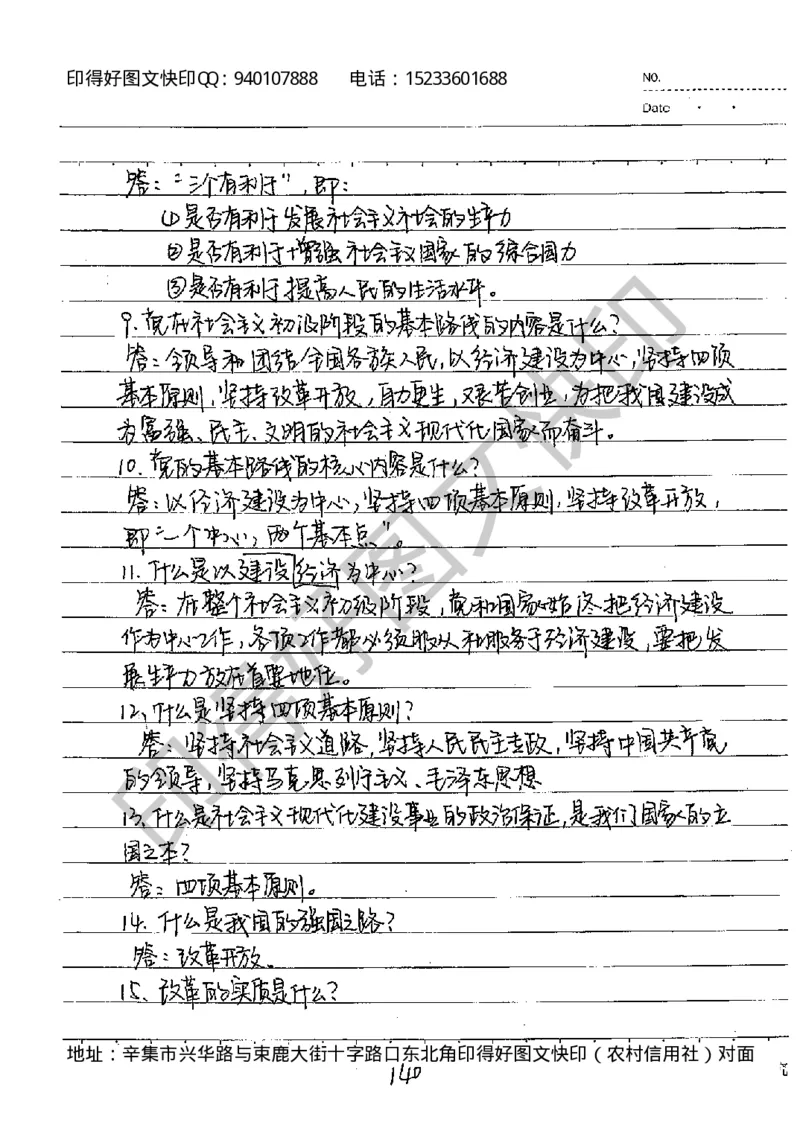 印得好图文快印QQ：940107888 电话：15233601688
NO.
Date
答：“三个有利于”，即：
①是否有利于发展社会主义社会的生产力
②是否有利于增强社会主义国家的综合国力
③是否有利于提高人民的生活水平。
9.党在社会主义初级阶段的基本路线的内容是什么？
答：领导和团结全国各族人民，以经济建设为中心，坚持四项
基本原则，坚持改革开放，自力更生，艰苦创业，为把我国建设成
为富强、民主、文明的社会主义现代化国家而奋斗。
10.党的基本路线的核心内容是什么？
答：以经济建设为中心，坚持四项基本原则，坚持改革开放，
即“一个中心，两个基本点”。
11.什么是以建设经济为中心？
答：在整个社会主义初级阶段，党和国家始终把经济建设
作为中心工作，各项工作都必须服从和服务于经济建设，要把发
展生产力放在首要地位。
12、什么是坚持四项基本原则？
答：坚持社会主义道路，坚持人民民主专政，坚持中国共产党
的领导，坚持马克思列宁主义、毛泽东思想
13、什么是社会主义现代化建设事业的政治保证，是我们国家的立
国之本？
答：四项基本原则。
14.什么是我国的强国之路？
答：改革开放。
15、改革的实质是什么？
地址：辛集市兴华路与束鹿大街十字路口东北角印得好图文快印（农村信用社）对面
140
印得好图文快印